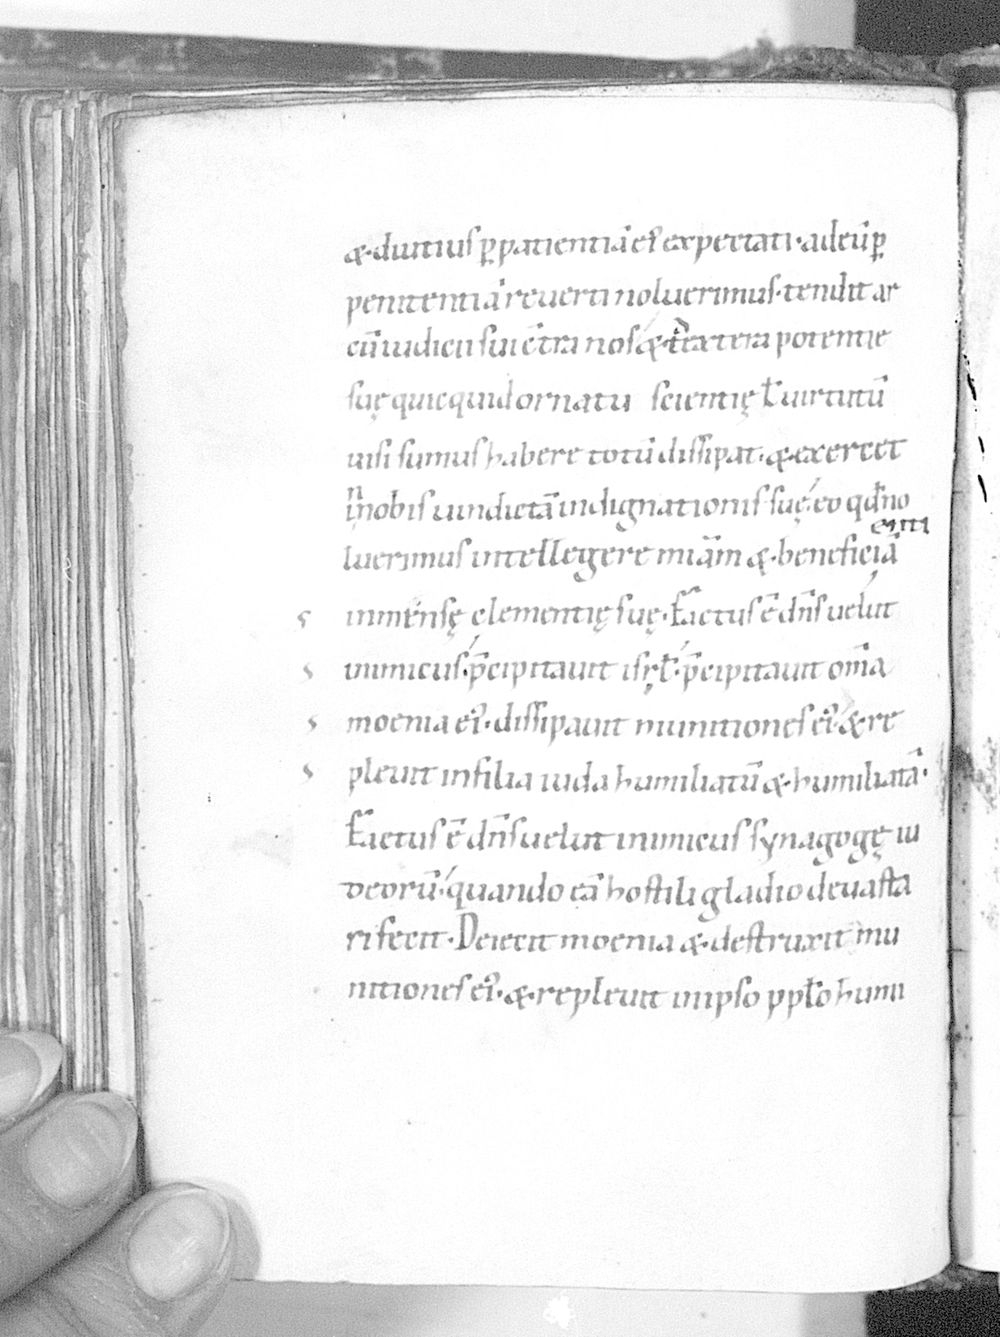 &·diutius ꝑ patientiā ei᷒ expectati·ad eū ꝑ
penitentiā reuerti noluerimus·tendit ar
cū iudicii sui c̄tra nos·& dextera potentie
suę quicquid ornatu scientię ł uirtutū
uisi sumus habere totū dissipat·& exercet
in nobis uindictā indignationis suę·eo qd̄ no
luerimus intellegere miām &·beneficiā
inmensę clementię suę·Factus ē dn̄s uelut
inimicus·p̄cipitauit isrł·p̄cipitauit om̄a
moenia ei᷒·dissipauit munitiones ei᷒·& re
pleuit in filia iuda humiliatū &·humiliatā·
Factus ē dn̄s uelut inimicus synagogę iu
deorū·quando eā hostili gladio deuasta
ri fecit·Deiecit moenia &·destruxit mu
nitiones ei᷒·&·repleuit in ipso ppło humi